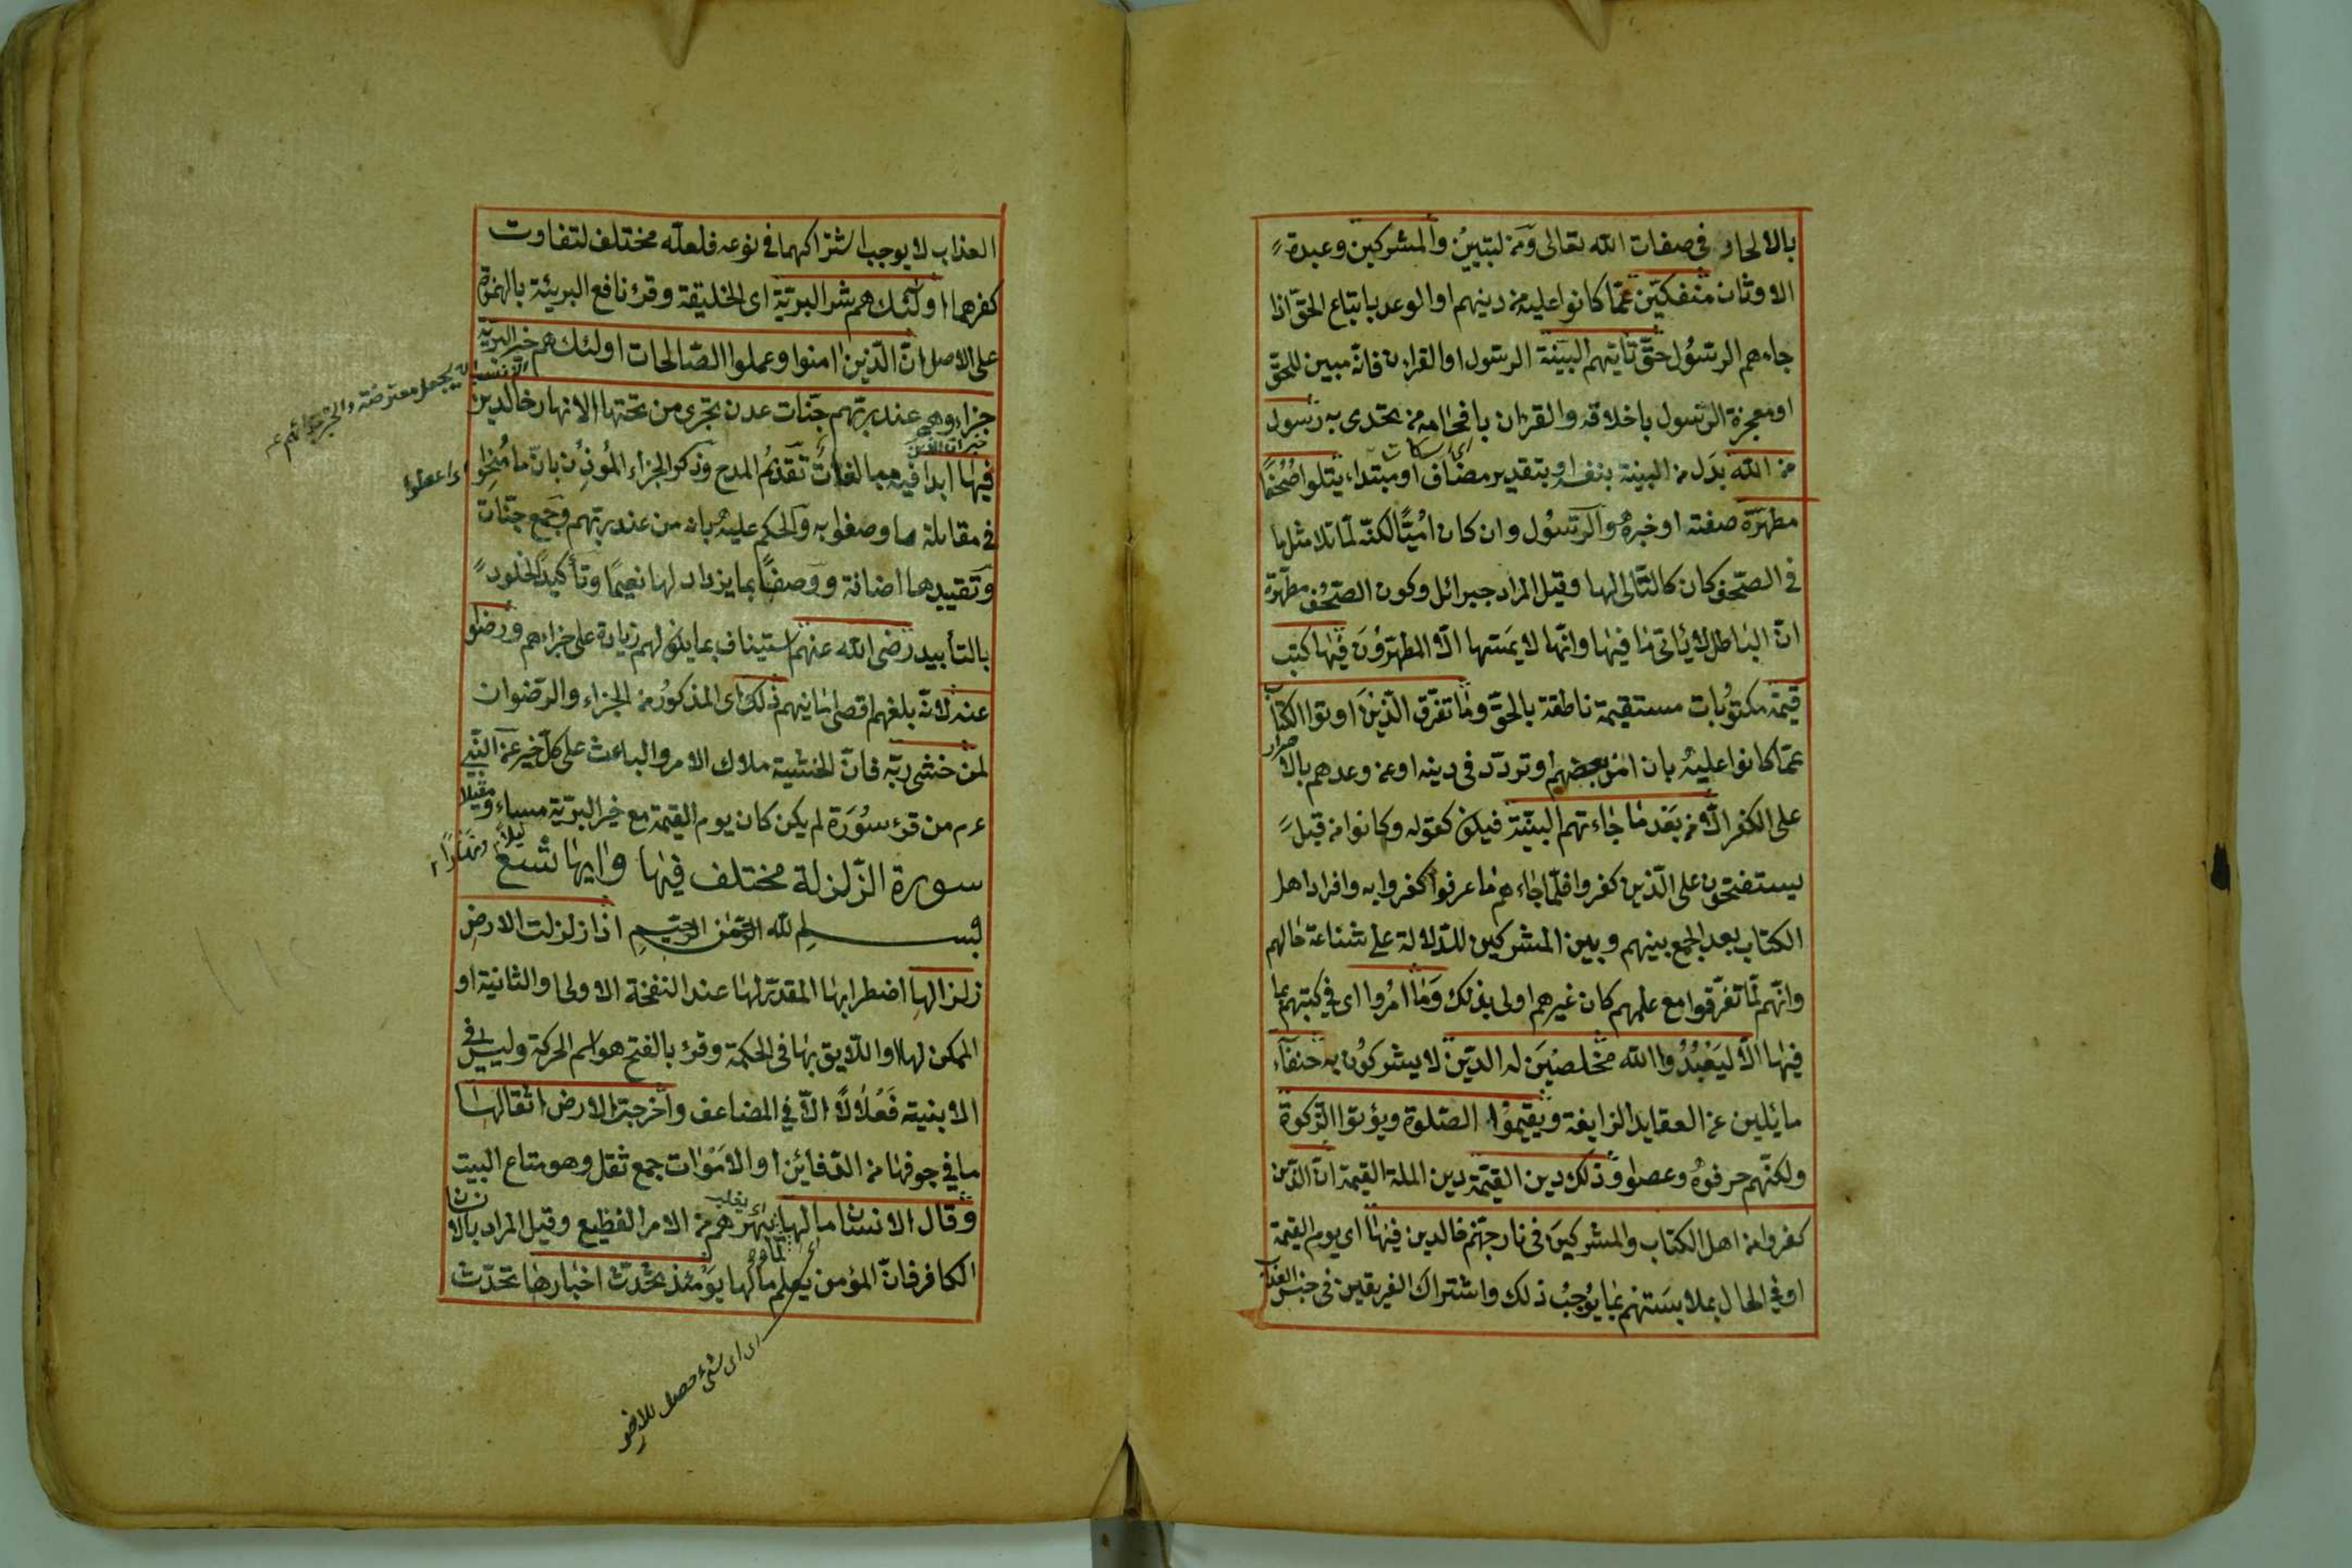 بالالحاد فى صفات الله تعالى ومن لتبيين والمشركين وعبدة
الاوثان منفكين عمّا كانوا عليه من دينهم او الوعد باتباع الحقّ اذا
جاءهم الرسُول حتّى تاتيهم البيّنة الرسول او القران فانّه مبين للحقّ
او معجزة الرسول باخلاقه والقران بافحامه من تحدى به رسول
من الله بدَل من البينة بنفسه او بتقدير مضاف او مبتداء يتلوا صُحُفًا
مطهّرة صفته او خبرهُ والرسُول وان كان امّيًّا لكنّه لمّا تلا مثل ما
فى الصّحف كان كالتّالى لها وقيل المراد جبرائل وكون الصّحُف مطهّرة
انّ البٰاطل لا ئاتى مٰا فيهٰا وانّها لا يمَسّها الّا المطهّرُونَ فيهٰا كتب
قيّمة مكتوُبات مستقيمة ناطقة بالحقّ ومٰا تفرّق الّذينَ اوتوا الكتاب
عمّا كانوا عليهُ بان امن بعضهم او تردّد فى دينه او عن وعدهم بالاصرار
على الكفر الّا من بَعْد مٰا جٰاءتهم البيّنة فيكون كقوله وكانوا من قبلُ
يستفتحون على الّذين كفروا فلمّا جٰاءهم مٰا عرفوا كفروا به وافراد اهل
الكتاب بعد الجمع بينهم وبين المشركين للدّلالة على شناعة حٰالهم
وانّهم لمّا تفرّقوا مع علمهم كان غيرهم اولى بذلك وَمٰا امُروا اى فى كتبهم بما
فيهٰا الّا ليَعْبُدُوا الله مخلصيْنَ له الدّيْنَ لا يشركوُن به حنفآء
مائلين عن العقايد الزايغة ويُقيمُوا الصّلوة ويؤتوا الزّكوة
ولكنّهم حرفوُه وعصوا وذلك دين القيّمة دين الملة القيمة انّ الذّين
كفروا من اهل الكتاب والمشركيَن فى نار جهنّم خالدين فيهٰا اى يوم القيمة
او فى الحال بملابسَتهم بمٰا يُوجبُ ذلك واشتراك الفريقين فى جنس العذاب
العذاب لا يوجب اشتراكهما فى نوعه فلعلّه مختلف لتفاوت
كفرهما اولٰئك هم شر البريّة اى الخليقة وقرئ نافع البريئة بالهمزة
على الاصل انّ الّذين اٰمنوا وعملوا الصّالحات اولئك هم خير البريّة
جزاءهم عند ربّهم جنّات عدن تجرى من تحتها الانهار خالدين
فيهٰا ابدا فيه مبالغات تقديُم المدح وذكر الجزاء المُوذِن بانّ ما مُنِحُوا
فى مقابلة ما وصفوا به والحكم عليه بانه من عند ربّهم وجمع جنّات
وتقييدها اضافة ووصفًا بما يزداد لها نعيمًا وتأكيد الخلود
بالتأبيد رضى الله عنهم استيناف بما يكون لهم زيادة على جزاءهم ورضوا
عنه لانّه بلغهم اقصى امانيهم ذلك اى المذكوُر من الجزاء والرّضوان
لمن خشى ربّه فانّ الخشية ملاك الامر والباعث على كلّ خير عن النّبى
عم من قرء سُورَة لم يكن كان يوم القيمة مع خير البريّة مساء ومقيلا
سورة الزّلزلة مختلف فيهٰا وايهٰا تسع
بسم الله الرّحمٰن الرّحيم اذا زلزلت الارض
زلزالها اضطرابهٰا المقدّر لهٰا عند النفخة الاولى او الثانية او
الممكن لها او اللّايق بهٰا فى الحكمة وقرء بالفتح هو اسم الحركة وليس فى
الابنية فَعْلَالًا الّا فى المضاعف واخرجت الارض اثقالهٰا
ما فى جوفهٰا من الدّفائن او الاموٰات جمع ثقل وهو متاع البيت
وقال الانسٰان ما لهٰا لما يبهرهم من الامر الفظيع وقيل المراد بالانسان
الكافر فانّ المؤمن يعلم ما لها يوَمئذ تحُدّث اخبارهٰا تحدّث
اى اى شئ حصل للارض